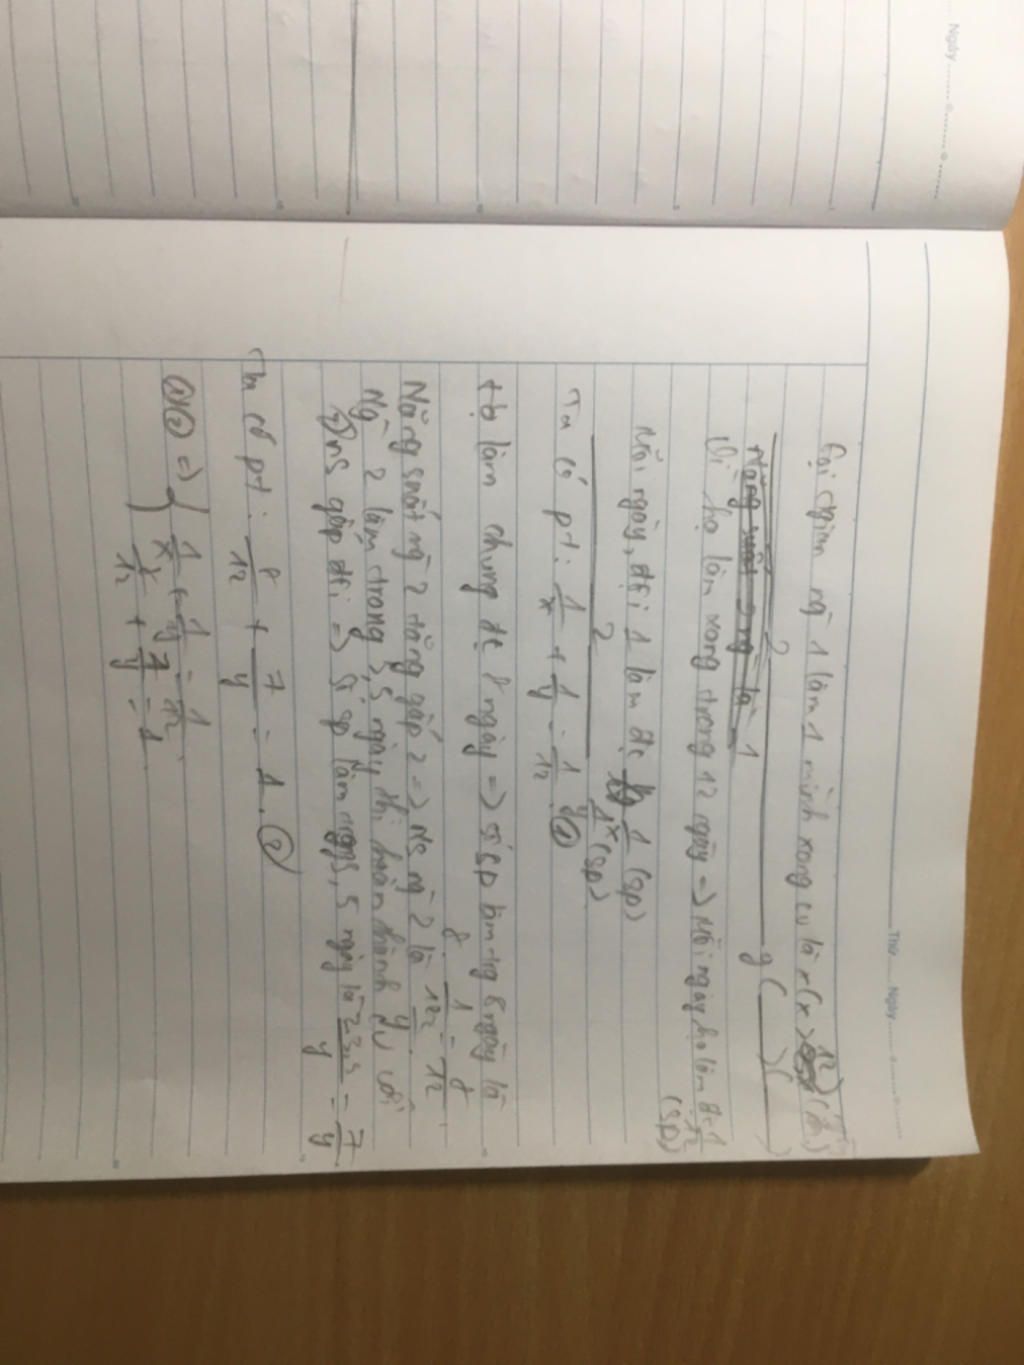 Ngày
Thứ Ngày
Gọi tgian ng 1 làm 1 mình xong cv là x (x > 12)
Năng suất 2 ng là 1
2 y
Vì họ làm xong trong 12 ngày => Mỗi ngày họ làm đc 1/12 (sp)
Mỗi ngày, đội 1 làm đc 1/x (sp)
2 1/y (sp)
Ta có pt: 1/x + 1/y = 1/12
Họ làm chung đc 8 ngày => số sp làm trg 8 ngày là
8 . 1/12 = 8/12
Năng suất ng 2 tăng gấp 2 => Ns ng 2 là 2/y
Ng 2 làm trong 3,5 ngày thì hoàn thành với
Ns gấp đôi => Số sp làm trong 3,5 ngày là = 7/y
Ta có pt: 8/12 + 7/y = 1. (2)
(1)(2) => { 1/x + 1/y = 1/12
8/12 + 7/y = 1